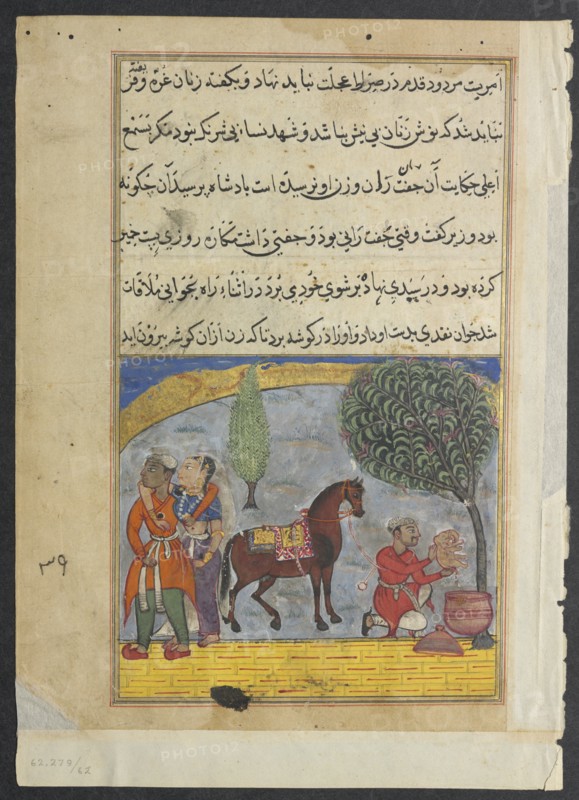 امریت مردود قدم در صراط عجلت نباید نهاد و بکفته زنان غره و فریفته
نباید شد که نوش زنان بی نیش نباشد و شهد نسا بی شرنک نبود مکر بسمع
اعلی حکایت آن جفت ران و زن او نرسیده است بادشاه پرسید آن چکونه
بود وزیر کفت وقتی جفت رانی بود و جفتی داشت مکاره روزی پست خمیر
کرده بود و در سبدی نهاده بر شوی خود می برد در اثناء راه بجوانی ملاقات
شد جوان نقدی بدست او داد و او را در کوشه برد تا که زن ازان کوشه بیرون اید
۳۹
62.279/62
PHOTO12